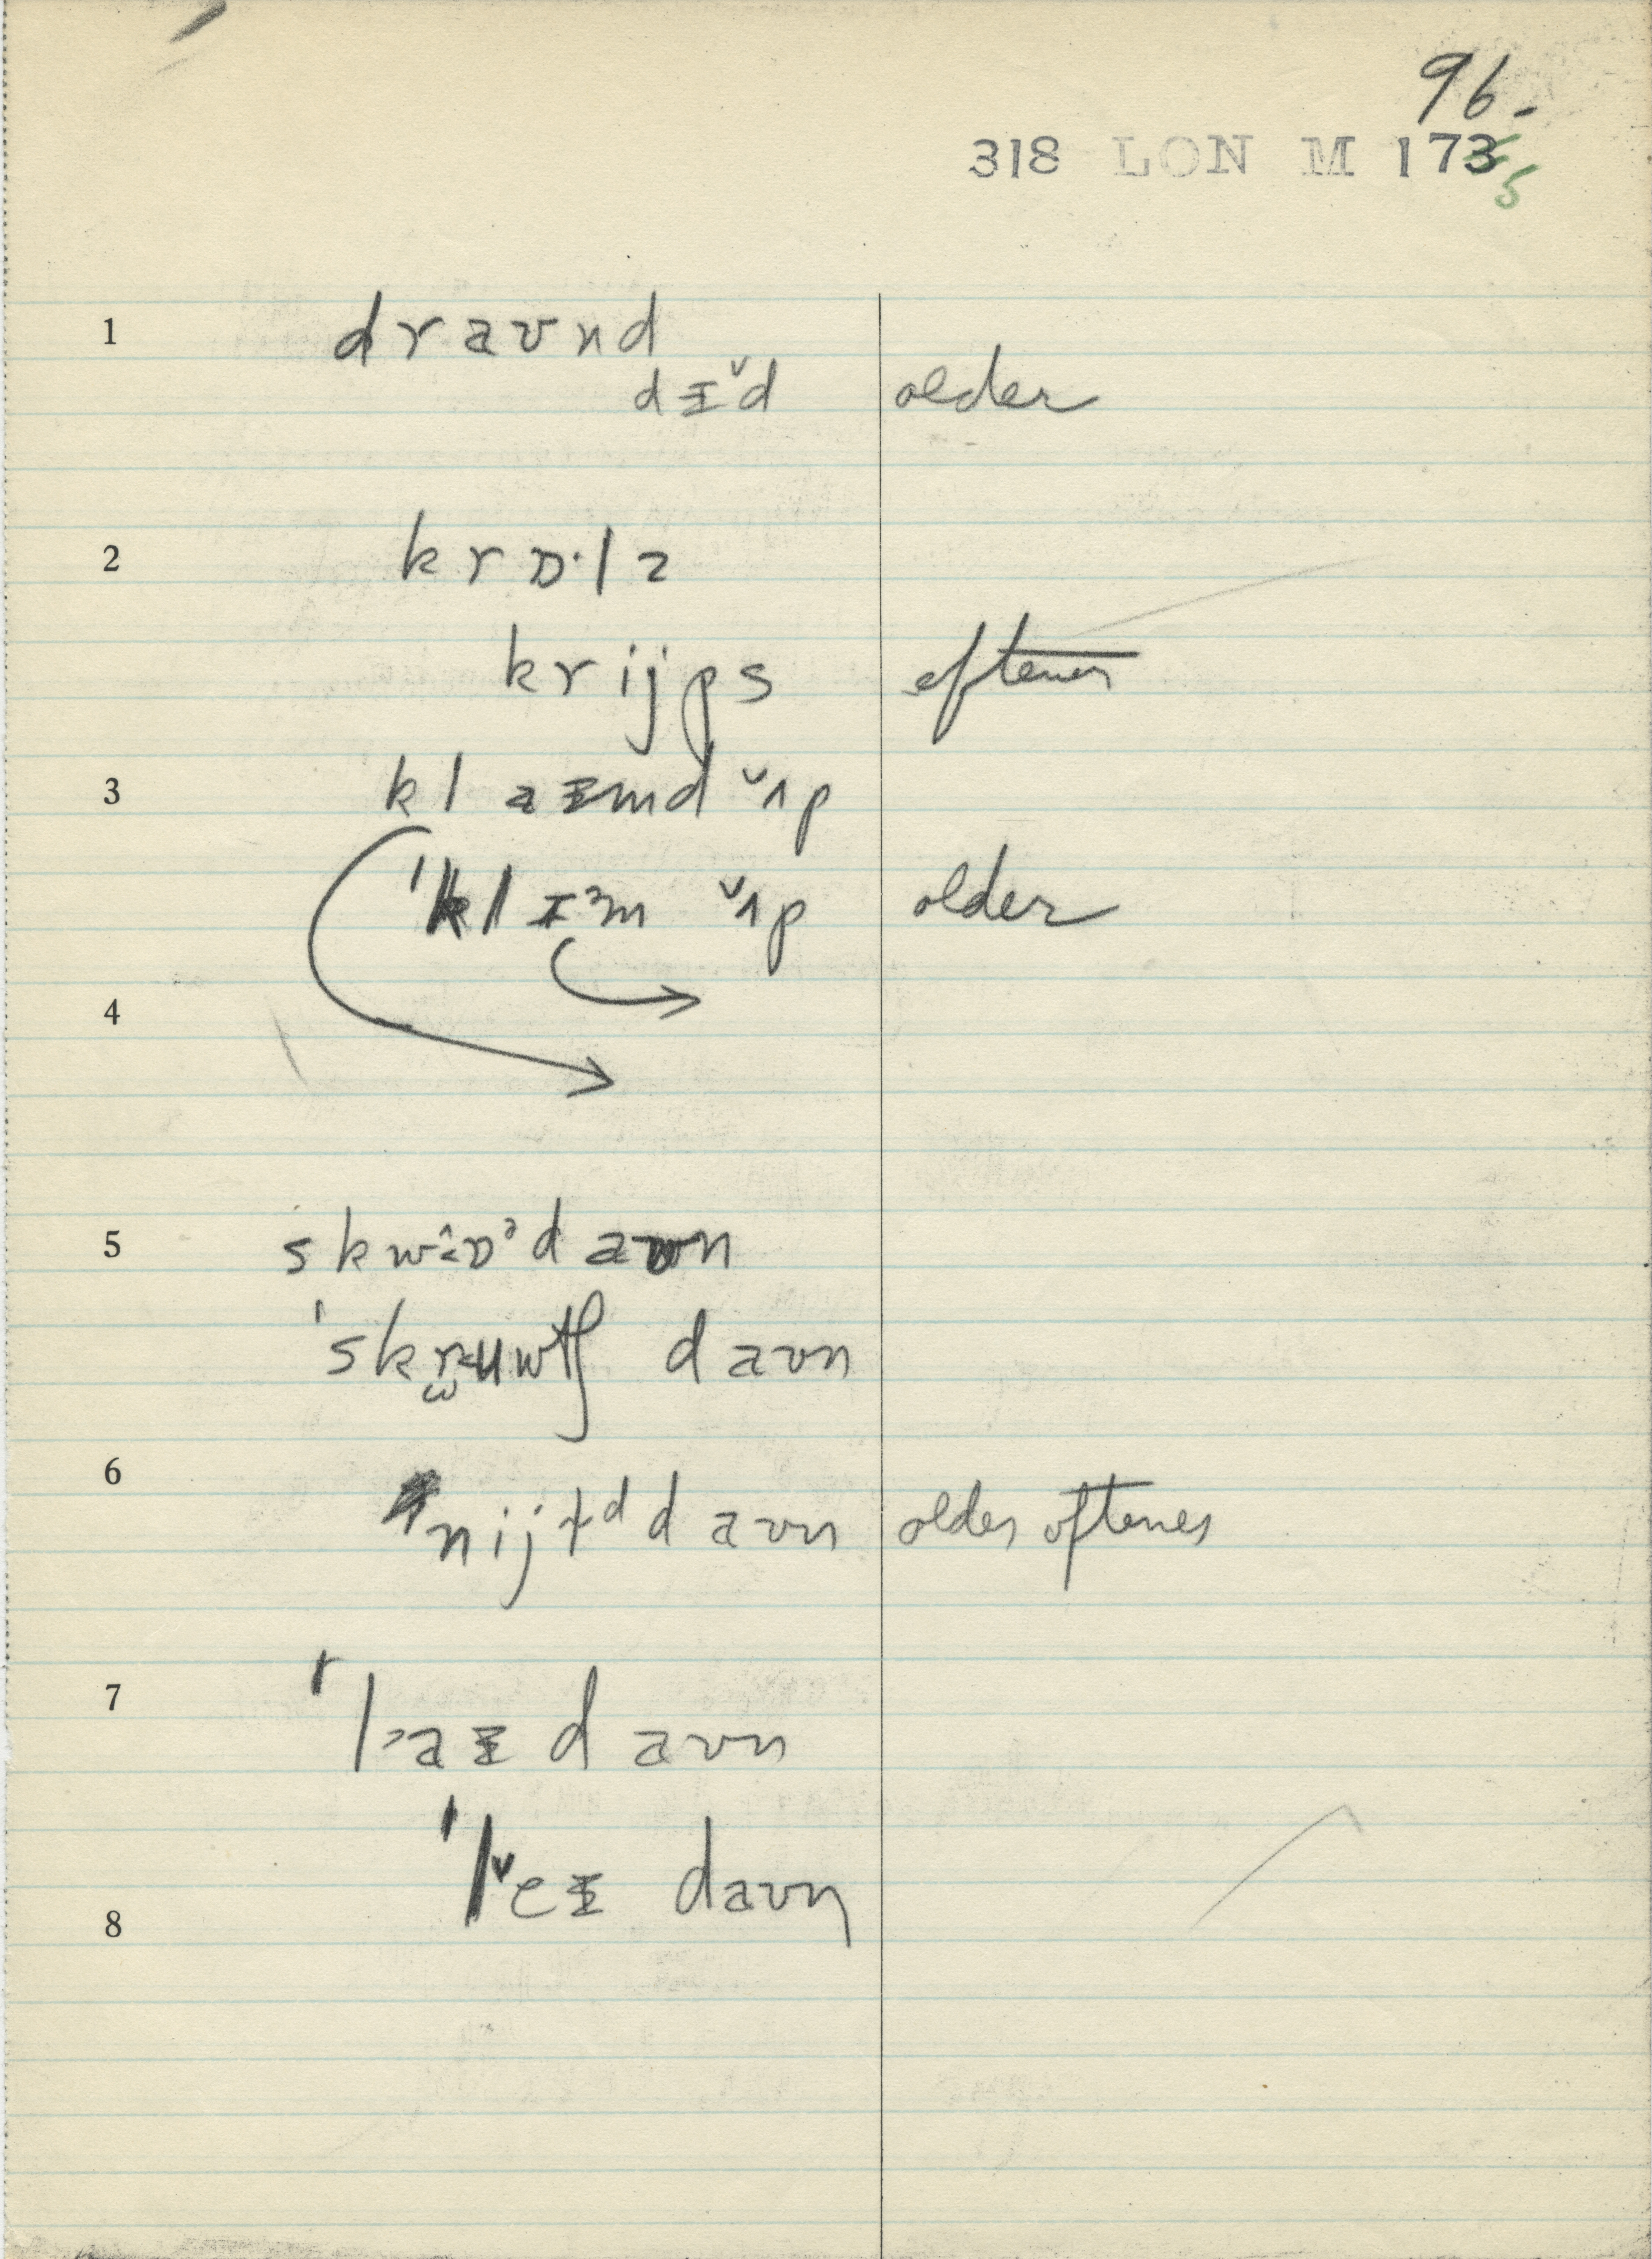 96.
318 LON M 1735
1 dravnd
dɪˇd older
2 krɒ·lz
krijps oftener
3 klaɪmd ˇʌp
'klɪᵊm ˇʌp older
4
5 skwɒᵊd avn
'skruwtʃ davn
6 nijɫᵈd avn older oftener
7 'l>aɪd avn
'lˇeɪ davn
8